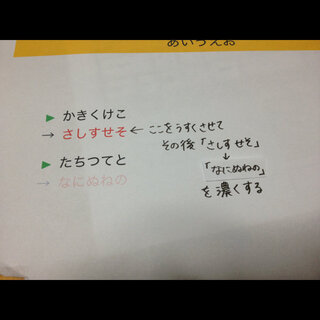 あいうえお
▶ かきくけこ
→ さしすせそ ← ここをうすくさせて
その後「さしすせそ」
↓
▶ たちつてと
「なにぬねの」
→ なにぬねの
を濃くする